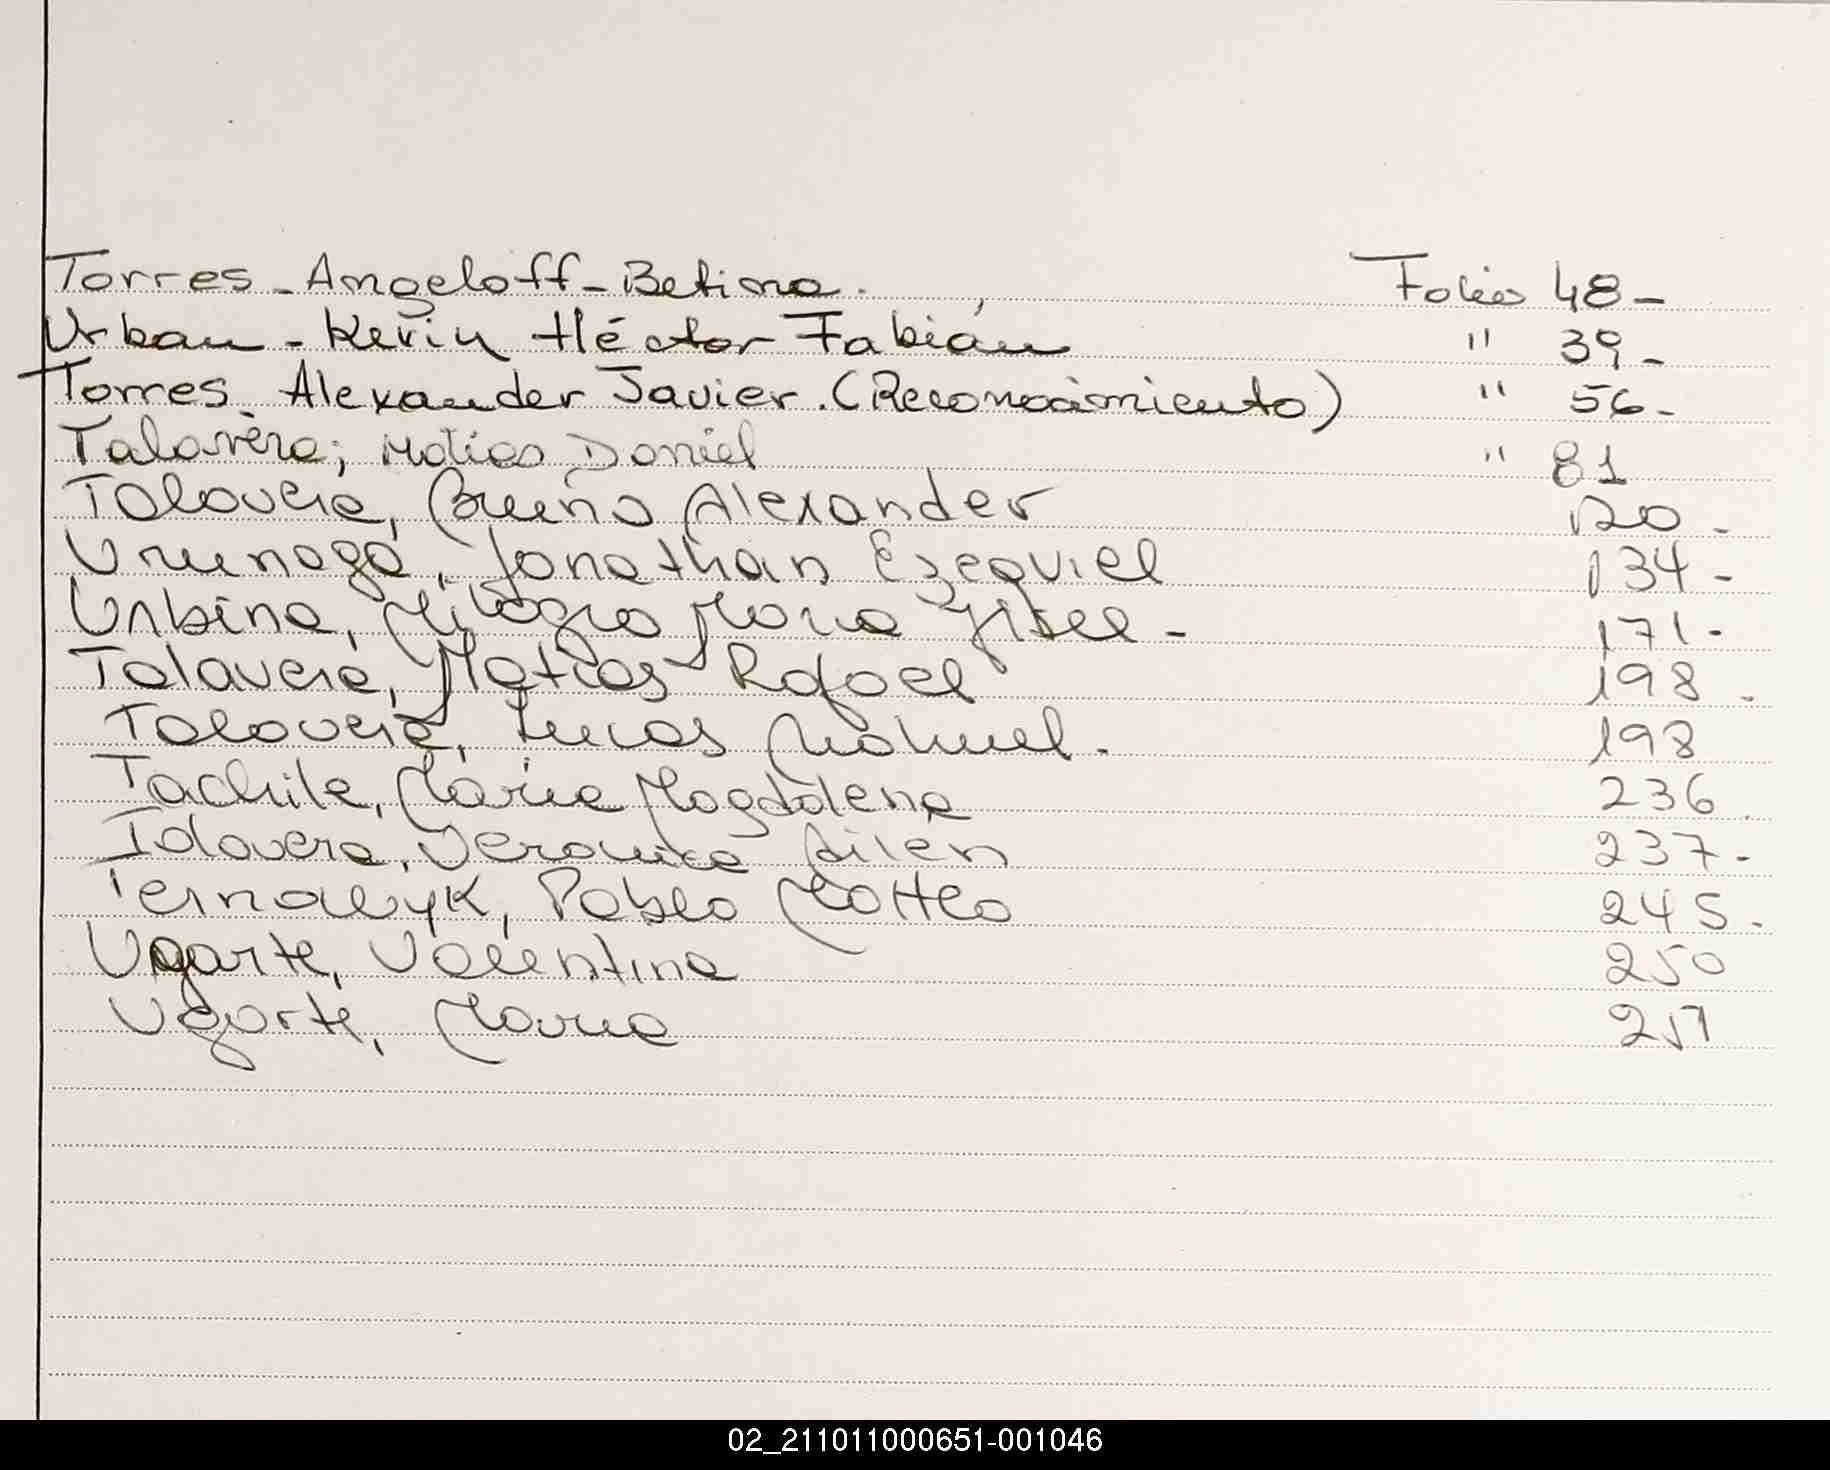 Torres - Angeloff - Betina. Folio 48 -
Urban - Kevin Héctor Fabián " 39 -
Torres. Alexander Javier. (Reconocimiento) " 56 -
Talavera; Matias Daniel " 81
Talavera, Bruno Alexander 120 -
Urunaga, Jonathan Ezequiel 134 -
Urbina, Milagro Maria Jisel - 171 -
Talavera, Matias Rafael 198 .
Talavera, Lucas Nahuel. 198
Tachile, Maria Magdalena 236 .
Talavera, Veronica Ailen 237 -
Pablo Matteo 245 -
Ugarte, Valentina 250
Ugarte, Maria 251
02_211011000651-001046